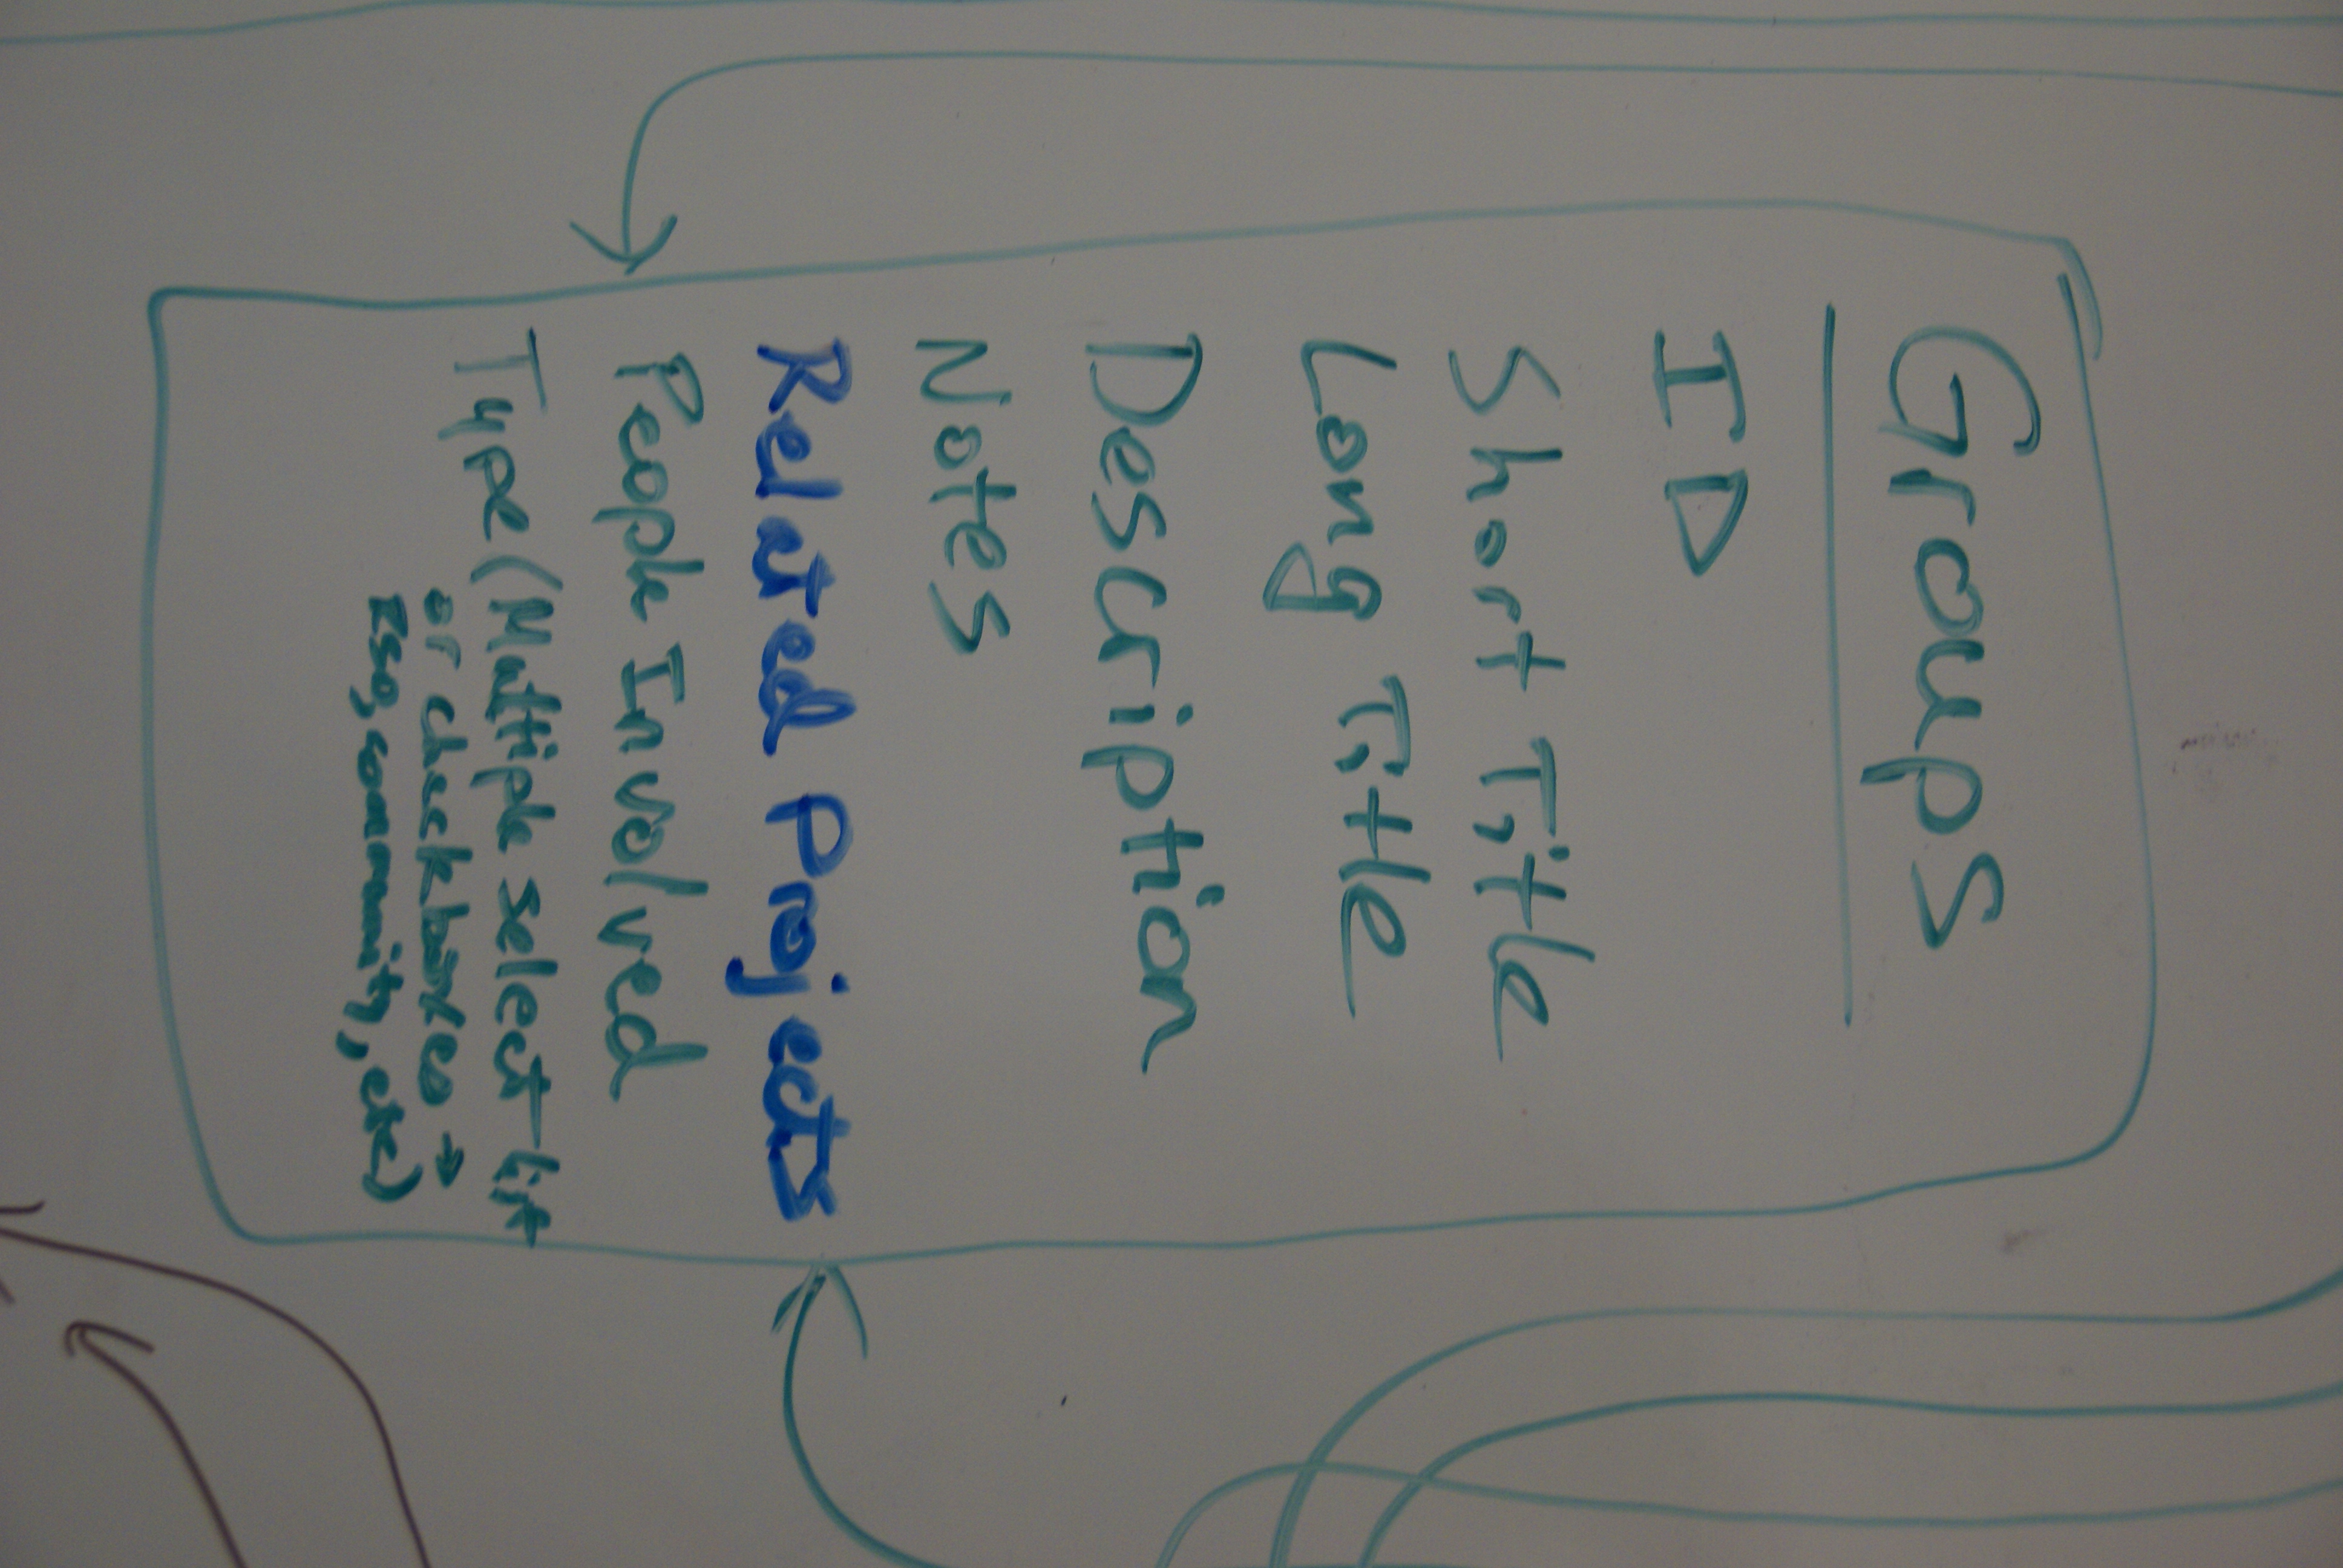 Groups
ID
Short Title
Long Title
Description
Notes
Related Projects
People Involved
Type (Multiple select list
or checkboxes →
ESG, community, etc)